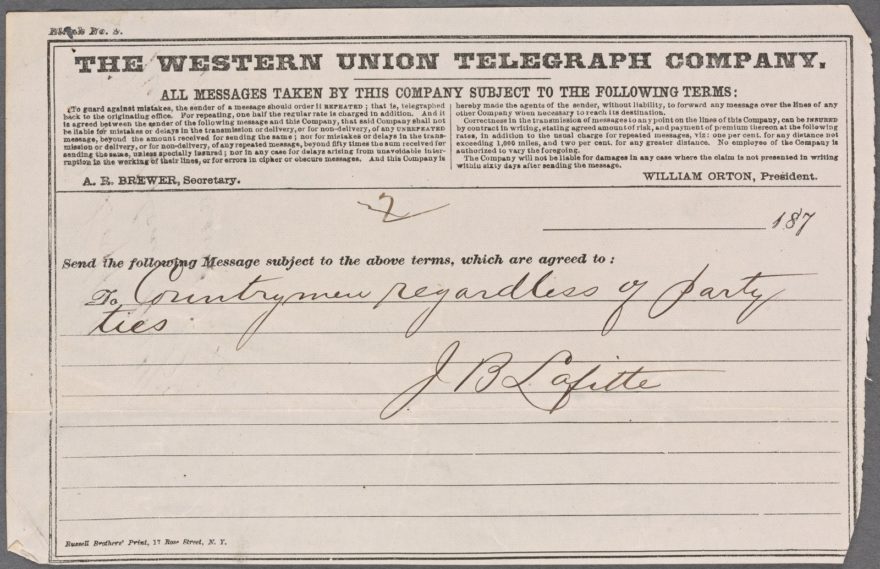 Blank No. 2.
THE WESTERN UNION TELEGRAPH COMPANY.
ALL MESSAGES TAKEN BY THIS COMPANY SUBJECT TO THE FOLLOWING TERMS:
To guard against mistakes, the sender of a message should order it REPEATED; that is, telegraphed
back to the originating office. For repeating, one half the regular rate is charged in addition. And it
is agreed between the sender of the following message and this Company, that said Company shall not
be liable for mistakes or delays in the transmission or delivery, or for non-delivery, of any UNREPEATED
message, beyond the amount received for sending the same; nor for mistakes or delays in the trans-
mission or delivery, or for non-delivery, of any repeated message, beyond fifty times the sum received for
sending the same, unless specially insured; nor in any case for delays arising from unavoidable inter-
ruption in the working of their lines, or for errors in cipher or obscure messages. And this Company is
hereby made the agents of the sender, without liability, to forward any message over the lines of any
other Company when necessary to reach its destination.
Correctness in the transmission of messages to any point on the lines of this Company, can be INSURED
by contract in writing, stating agreed amount of risk, and payment of premium thereon at the following
rates, in addition to the usual charge for repeated messages, viz: one per cent. for any distance not
exceeding 1,000 miles, and two per cent. for any greater distance. No employee of the Company is
authorized to vary the foregoing.
The Company will not be liable for damages in any case where the claim is not presented in writing
within sixty days after sending the message.
A. R. BREWER, Secretary.
WILLIAM ORTON, President.
2
187
Send the following Message subject to the above terms, which are agreed to:
To Countrymen regardless of party
ties
J B Lafitte
Russell Brothers' Print, 17 Rose Street, N. Y.